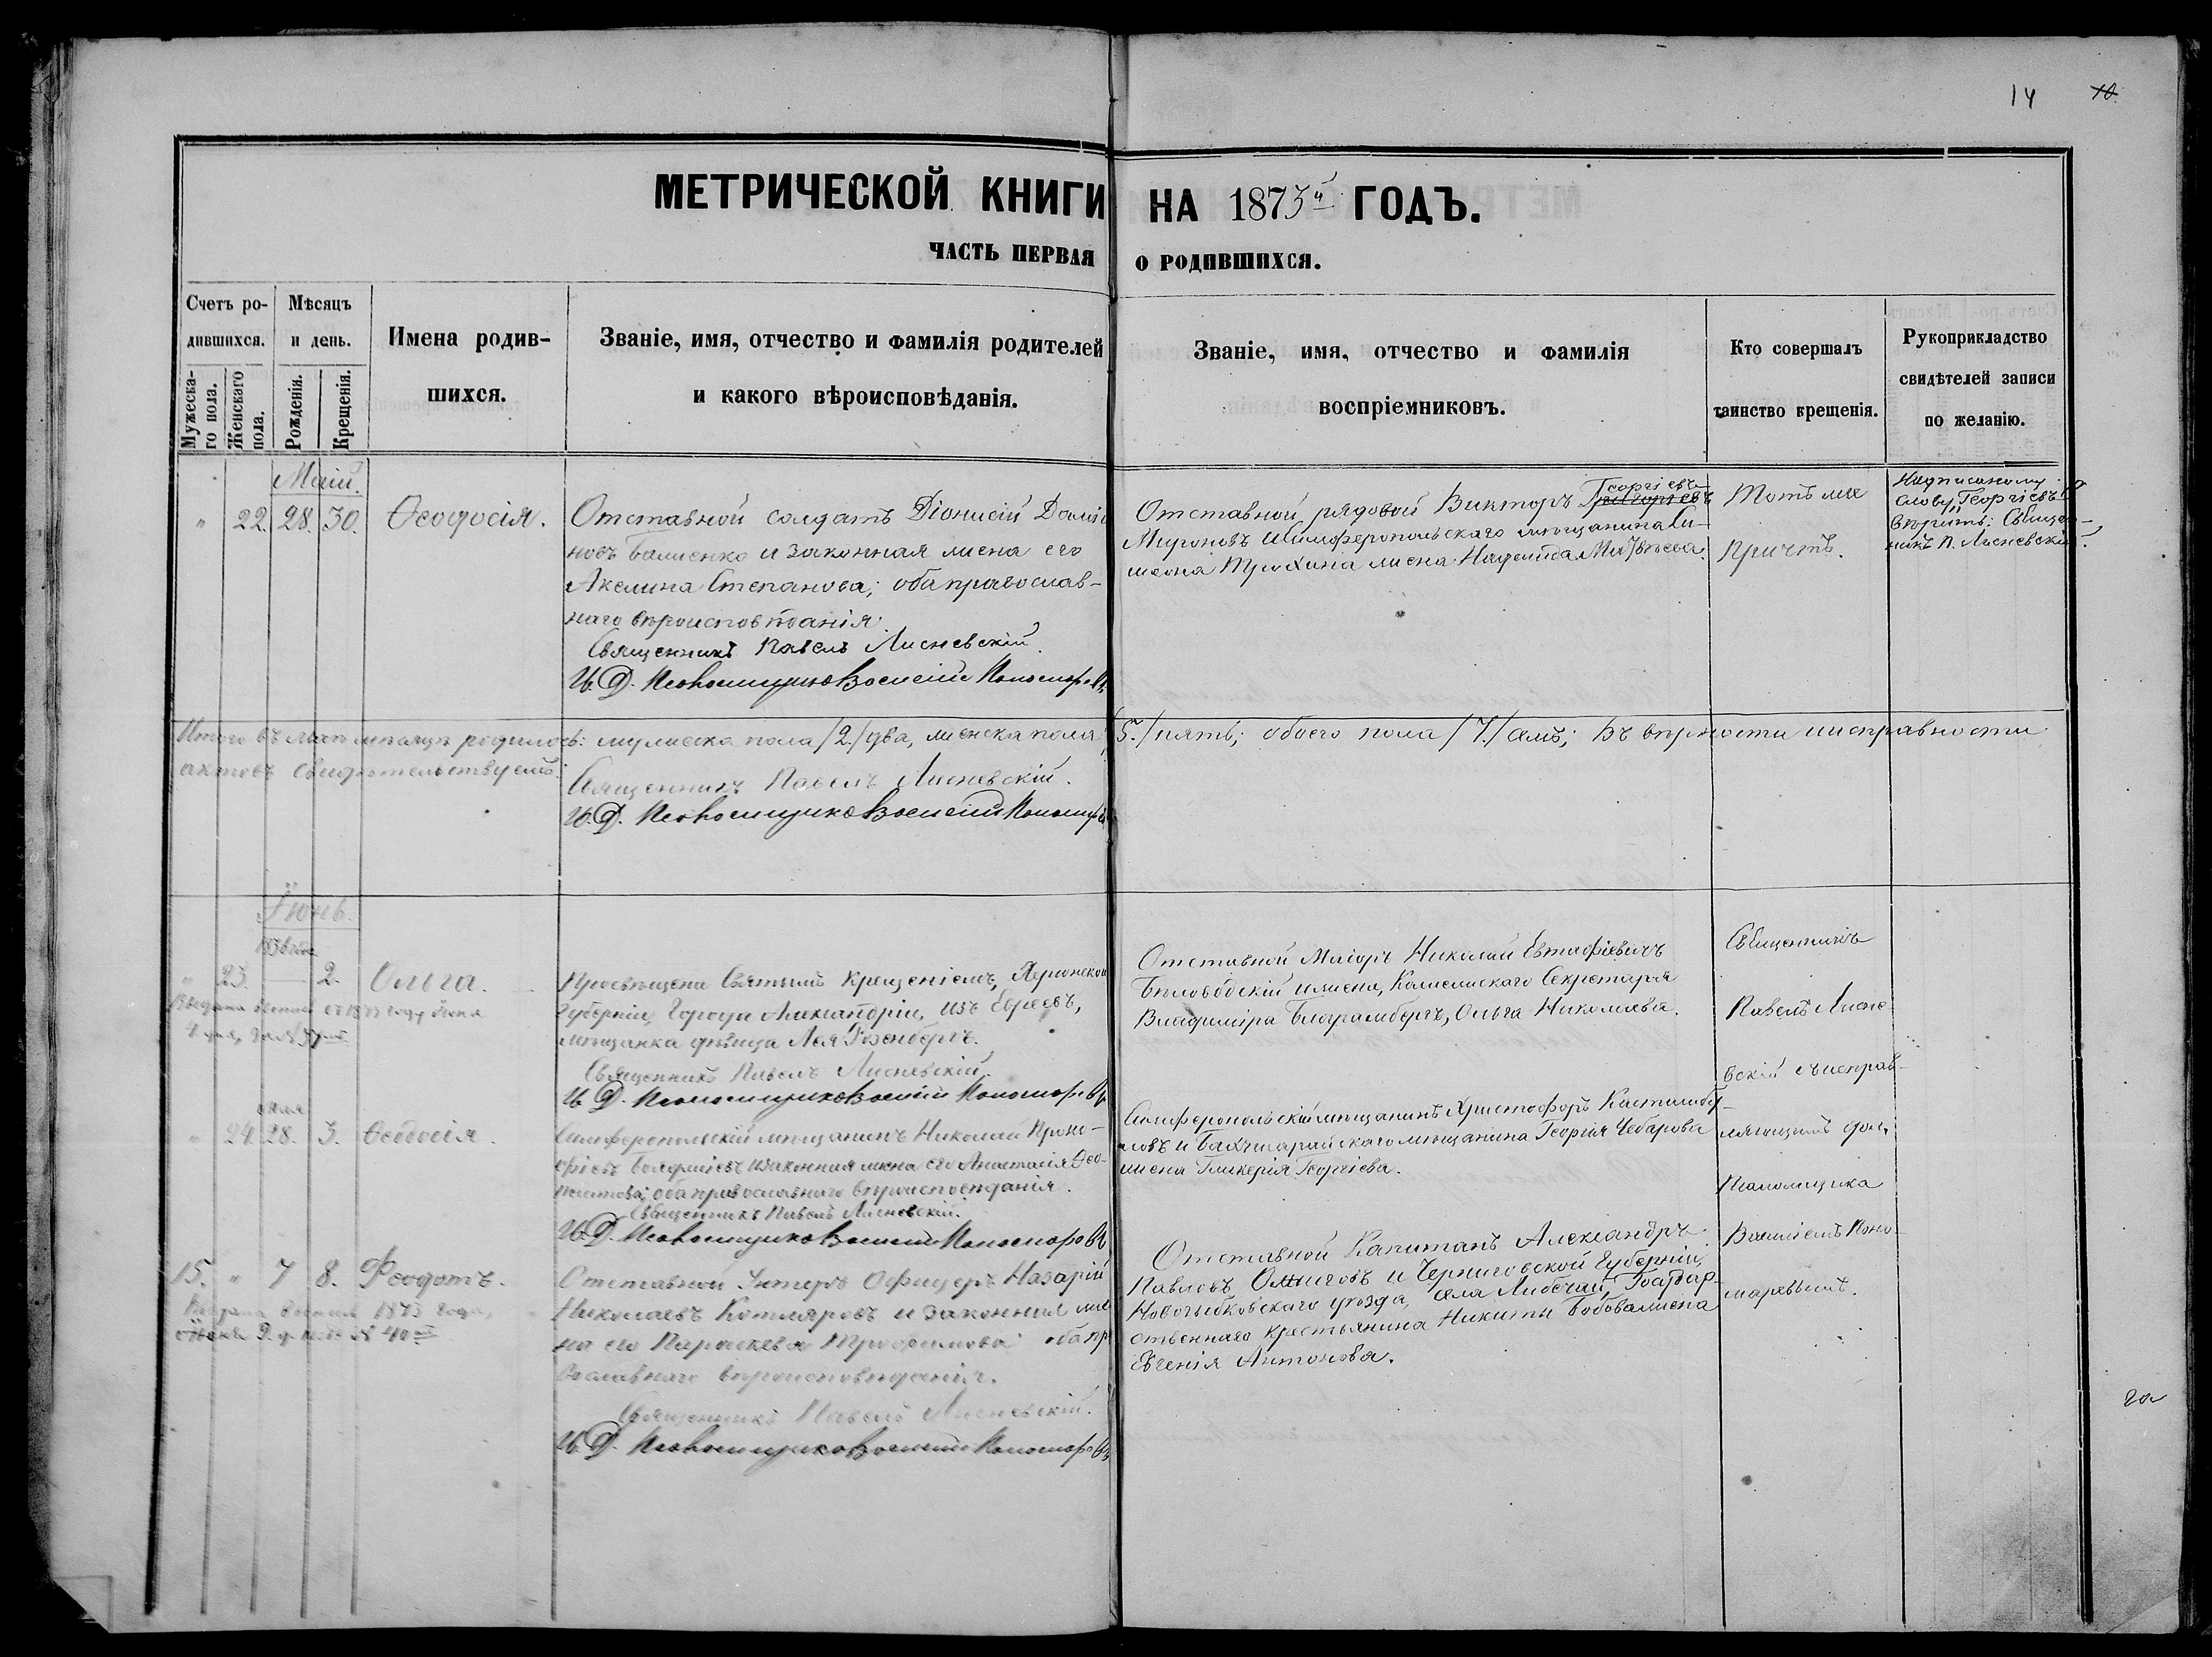 14 10.
МЕТРИЧЕСКОЙ КНИГИ НА 1873й ГОДЪ.
ЧАСТЬ ПЕРВАЯ О РОДИВШИХСЯ.
Счетъ ро-
дившихся.
Мужеска-
го пола.
Женскаго
пола.
Мѣсяцъ
и день.
Рожденія.
Крещенія.
Имена родив-
шихся.
Званіе, имя, отчество и фамилія родителей
и какого вѣроисповѣданія.
Званіе, имя, отчество и фамилія
воспріемниковъ.
Кто совершалъ
таинство крещенія.
Рукоприкладство
свидѣтелей записи
по желанію.
Маій.
" 22. 28. 30. Ѳеодосія.
Отставной солдатъ Діонисій
новъ и законная жена его
Акелина Степанова; оба православ-
наго вѣроисповѣданія.
Священникъ Павелъ Лисневскій.
И. Д. Псаломщика Василій Пономаревъ
Отставной рядовой Викторъ Георгіевъ Григорьевъ
Мироновъ и Симферопольскаго мѣщанина Си-
меона Трохина жена Надежда Матвѣева.
Тотъ же
Причтъ.
Надписаному
слову „Георгіевъ"
вѣрить: Священ-
никъ П. Лисневскій.
Итого въ маѣ мѣсяцѣ родилось: мужеска пола /2./ два, женска пола /5./ пять; обоего пола /7./ семь; Въ вѣрности и исправности
актовъ свидѣтельствуемъ:
Священникъ Павелъ Лисневскій.
И. Д. Псаломщика Василій Пономаревъ
Іюнь.
" 23. — 2. Ольга.
Просвѣщена Святымъ Крещеніемъ, Херсонской
Губерніи, Города Александріи, изъ Евреевъ,
мѣщанка дѣвица Лея Розенбергъ.
Священникъ Павелъ Лисневскій.
И. Д. Псаломщика Василій Пономаревъ
Отставной Маіоръ Николай Евстафіевичъ
Бѣловодскій и жена, Коллежскаго Секретаря
Владиміра Бларамбергъ, Ольга Николаева.
Священникъ
Павелъ Лисне
вскій съ исправ-
ляющимъ дол.
Псаломщика
Василіемъ Поно-
маревымъ.
Мая
" 24. 28. 3. Ѳеодосія.
Симферопольскій мѣщанинъ Николай Проко-
фіевъ и законная жена его Анастасія Ѳео-
оба православнаго вѣроисповѣданія.
Священникъ Павелъ Лисневскій.
И. Д. Псаломщика Василій Пономаревъ
Симферопольскій мѣщанинъ Христофоръ
ловъ и Бахчисарайскаго мѣщанина Георгія Чебарова
жена Гликерія Георгіева.
15. " 7 8. Ѳеодотъ.
Отставной Унтеръ Офицеръ Назарій
Николаевъ Котляровъ и законная же
на его Параскева Трофимова: оба пра
вославнаго вѣроисповѣданія.
Священникъ Павелъ Лисневскій.
И. Д. Псаломщика Василій Пономаревъ
Отставной Капитанъ Александръ
Павловъ и Черниговской Губерніи,
Новозыбковскаго уѣзда, села Государ-
ственнаго крестьянина Никиты жена
Евгенія Антонова.